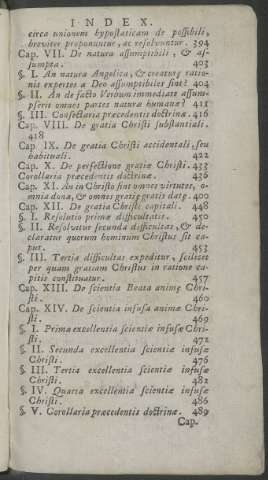 INDEX.
circa unionem hypostaticam de possibili,
breviter proponuntur, ac resolvuntur. 394
Cap. VII. De natura assumptibili, & as-
sumpta. 403
§. I. An natura Angelica, & creaturæ ratio-
nis expertes a Deo assumptibiles sint? 404
§. II. An de facto Verbum immediate assum-
pserit omnes partes naturæ humanæ? 411
§. III. Consectaria præcedentis doctrinæ. 416
Cap. VIII. De gratia Christi substantiali.
418
Cap. IX. De gratia Christi accidentali, seu
habituali. 422
Cap. X. De perfectione gratiæ Christi. 433
Corollaria præcedentis doctrinæ. 436
Cap. XI. An in Christo sint omnes virtutes, o-
mnia dona, & omnes gratiæ gratis datæ. 400
Cap. XII. De gratia Christi capitali. 448
§. I. Resolutio primæ difficultatis. 450
§. II. Resolvitur secunda difficultas, & de-
claratur quorum hominum Christus sit ca-
put. 453
§. III. Tertia difficultas expeditur, scilicet
per quam gratiam Christus in ratione ca-
pitis constituatur. 457
Cap. XIII. De scientia Beata animæ Chri-
sti. 460
Cap. XIV. De scientia infusa animæ Chri-
sti. 469
§. I. Prima excellentia scientiæ infusæ Chri-
sti. 472
§. II. Secunda excellentia scientiæ infusæ
Christi. 476
§. III. Tertia excellentia scientiæ infusæ
Christi. 482
§. IV. Quarta excellentia scientiæ infusæ
Christi. 486
§. V. Corollaria præcedentis doctrinæ. 489
Cap.